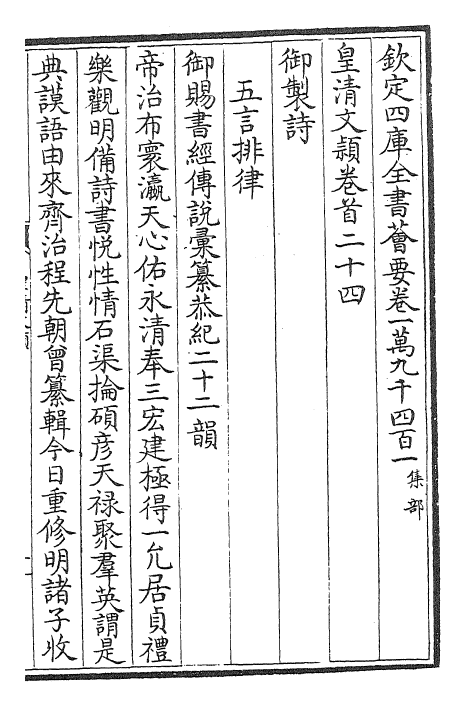 欽定四庫全書薈要卷一萬九千四百一集部
皇清文頴卷首二十四
御製詩
五言排律
御賜書經傳說彙纂恭紀二十二韻
帝治布寰瀛天心佑永清奉三宏建極得一允居貞禮
樂觀明備詩書悅性情石渠掄碩彥天祿聚羣英謂是
典謨語由來齊治程先朝曾纂輯今日重修明諸子收